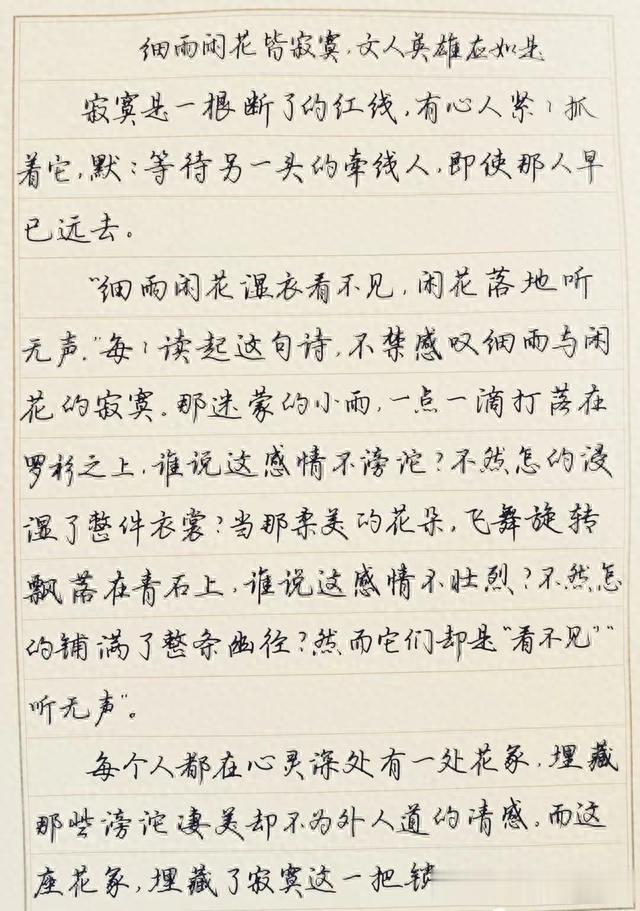 细雨闲花皆寂寞,文人英雄应如是
寂寞是一根断了的红线,有心人紧々抓
着它,默:等待另一头的牵线人,即使那人早
已远去。
“细雨闲花湿衣看不见,闲花落地听
无声.”每々读起这句诗,不禁感叹细雨与闲
花的寂寞。那迷蒙的小雨,一点一滴打落在
罗衫之上,谁说这感情不滂沱?不然怎的浸
湿了整件衣裳?当那柔美的花朵,飞舞旋转
飘落在青石上,谁说这感情不壮烈?不然怎
的铺满了整条幽径?然而它们却是“看不见”“
听无声”。
每个人都在心灵深处有一处花冢,埋藏
那些滂沱凄美却不为外人道的情感,而这
座花冢,埋藏了寂寞这一把锁